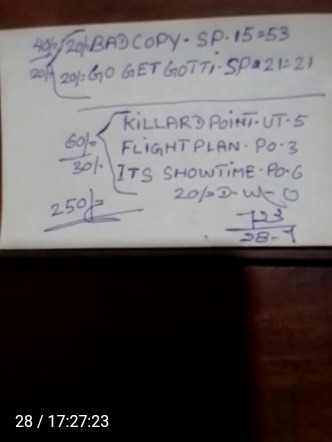 40/= 20/= BAD COPY - SP - 15=53
20/= 20/= GO GET GOTTI - SP = 21=21
KILLARD POINT - UT - 5
60/= FLIGHT PLAN - PO - 3
30/- ITS SHOWTIME - PO - 6
20/= D-W-O
250/=
723
28-7
28 / 17:27:23